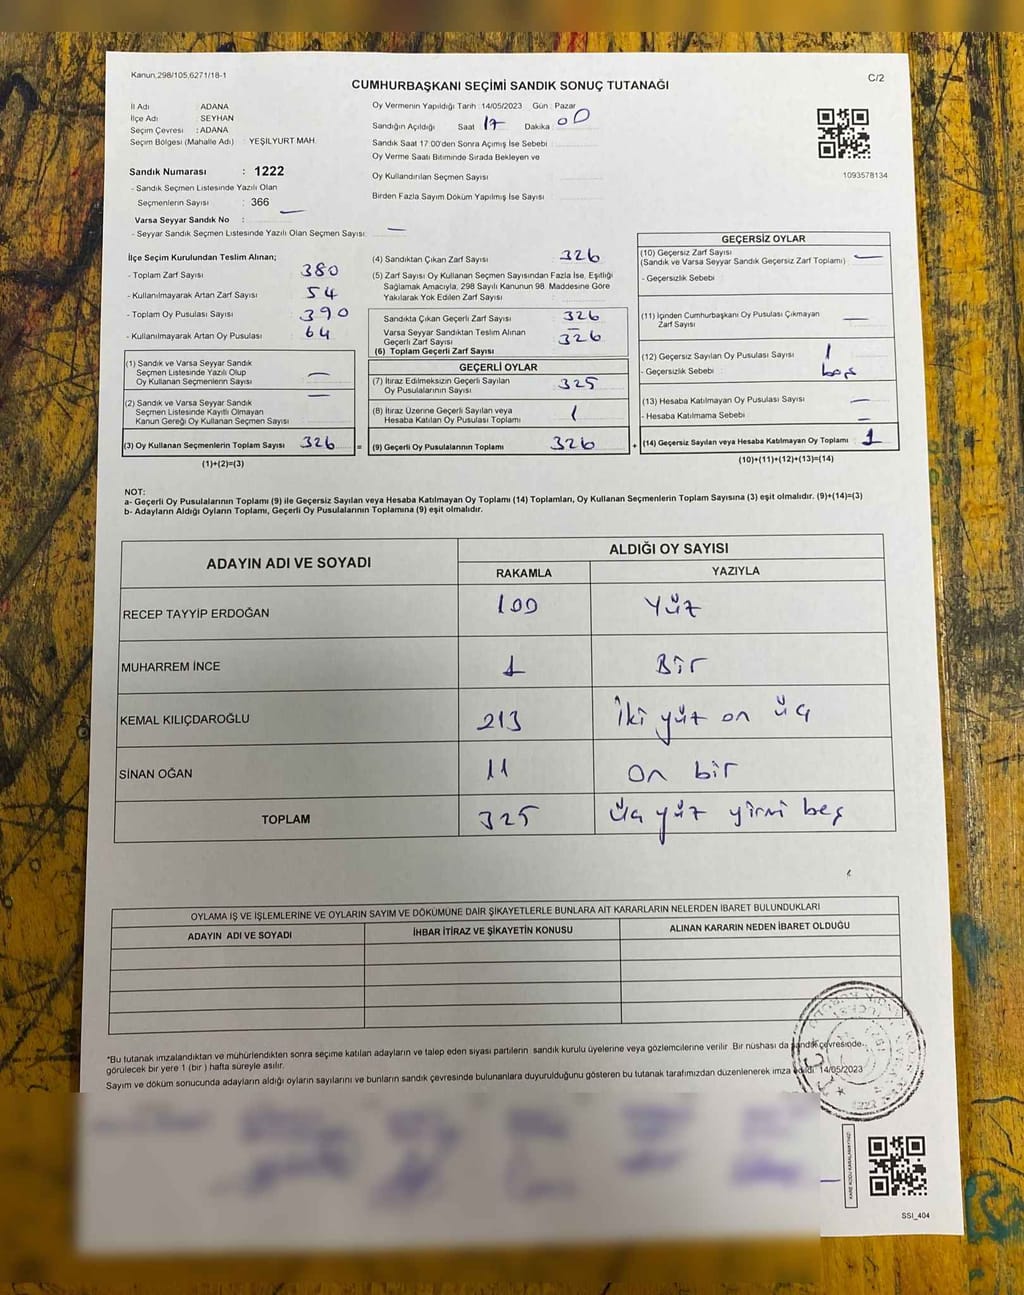 Kanun,298/105,6271/18-1
C/2
CUMHURBAŞKANI SEÇİMİ SANDIK SONUÇ TUTANAĞI
İl Adı : ADANA
İlçe Adı : SEYHAN
Seçim Çevresi : ADANA
Seçim Bölgesi (Mahalle Adı) : YEŞİLYURT MAH.
Oy Vermenin Yapıldığı Tarih : 14/05/2023 Gün : Pazar
Sandığın Açıldığı Saat 17 Dakika : 00
Sandık Saat 17:00'den Sonra Açımış İse Sebebi
Oy Verme Saati Bitiminde Sırada Bekleyen ve
Oy Kullandırılan Seçmen Sayısı
Birden Fazla Sayım Döküm Yapılmış İse Sayısı
1093578134
Sandık Numarası : 1222
- Sandık Seçmen Listesinde Yazılı Olan
Seçmenlerin Sayısı : 366
Varsa Seyyar Sandık No : —
- Seyyar Sandık Seçmen Listesinde Yazılı Olan Seçmen Sayısı: —
İlçe Seçim Kurulundan Teslim Alınan;
- Toplam Zarf Sayısı 380
- Kullanılmayarak Artan Zarf Sayısı 54
- Toplam Oy Pusulası Sayısı 390
- Kullanılmayarak Artan Oy Pusulası 64
(1) Sandık ve Varsa Seyyar Sandık
Seçmen Listesinde Yazılı Olup
Oy Kullanan Seçmenlerin Sayısı —
(2) Sandık ve Varsa Seyyar Sandık
Seçmen Listesinde Kayıtlı Olmayan
Kanun Gereği Oy Kullanan Seçmen Sayısı —
(3) Oy Kullanan Seçmenlerin Toplam Sayısı 326 =
(1)+(2)=(3)
(4) Sandıktan Çıkan Zarf Sayısı 326
(5) Zarf Sayısı Oy Kullanan Seçmen Sayısından Fazla İse, Eşitliği
Sağlamak Amacıyla, 298 Sayılı Kanunun 98. Maddesine Göre
Yakılarak Yok Edilen Zarf Sayısı
Sandıkta Çıkan Geçerli Zarf Sayısı 326
Varsa Seyyar Sandıktan Teslim Alınan
Geçerli Zarf Sayısı —
(6) Toplam Geçerli Zarf Sayısı 326
GEÇERLİ OYLAR
(7) İtiraz Edilmeksizin Geçerli Sayılan
Oy Pusulalarının Sayısı 325
(8) İtiraz Üzerine Geçerli Sayılan veya
Hesaba Katılan Oy Pusulası Toplamı 1
(9) Geçerli Oy Pusulalarının Toplamı 326 +
GEÇERSİZ OYLAR
(10) Geçersiz Zarf Sayısı
(Sandık ve Varsa Seyyar Sandık Geçersiz Zarf Toplamı) —
- Geçersizlik Sebebi :
(11) İçinden Cumhurbaşkanı Oy Pusulası Çıkmayan
Zarf Sayısı —
(12) Geçersiz Sayılan Oy Pusulası Sayısı 1
- Geçersizlik Sebebi : boş
(13) Hesaba Katılmayan Oy Pusulası Sayısı —
- Hesaba Katılmama Sebebi : —
(14) Geçersiz Sayılan veya Hesaba Katılmayan Oy Toplamı 1
(10)+(11)+(12)+(13)=(14)
NOT:
a- Geçerli Oy Pusulalarının Toplamı (9) ile Geçersiz Sayılan veya Hesaba Katılmayan Oy Toplamı (14) Toplamları, Oy Kullanan Seçmenlerin Toplam Sayısına (3) eşit olmalıdır. (9)+(14)=(3)
b- Adayların Aldığı Oyların Toplamı, Geçerli Oy Pusulalarının Toplamına (9) eşit olmalıdır.
ADAYIN ADI VE SOYADI ALDIĞI OY SAYISI
RAKAMLA YAZIYLA
RECEP TAYYİP ERDOĞAN 100 Yüz
MUHARREM İNCE 1 Bir
KEMAL KILIÇDAROĞLU 213 İki yüz on üç
SİNAN OĞAN 11 On bir
TOPLAM 325 Üç yüz yirmi beş
OYLAMA İŞ VE İŞLEMLERİNE VE OYLARIN SAYIM VE DÖKÜMÜNE DAİR ŞİKAYETLERLE BUNLARA AİT KARARLARIN NELERDEN İBARET BULUNDUKLARI
ADAYIN ADI VE SOYADI İHBAR İTİRAZ VE ŞİKAYETİN KONUSU ALINAN KARARIN NEDEN İBARET OLDUĞU
*Bu tutanak imzalandıktan ve mühürlendikten sonra seçime katılan adayların ve talep eden siyasi partilerin sandık kurulu üyelerine veya gözlemcilerine verilir. Bir nüshası da sandık çevresinde
görülecek bir yere 1 (bir) hafta süreyle asılır.
Sayım ve döküm sonucunda adayların aldığı oyların sayılarını ve bunların sandık çevresinde bulunanlara duyurulduğunu gösteren bu tutanak tarafımızdan düzenlenerek imza edildi. 14/05/2023
1222
KARE KODU KARALAMAYINIZ!
SSI_404